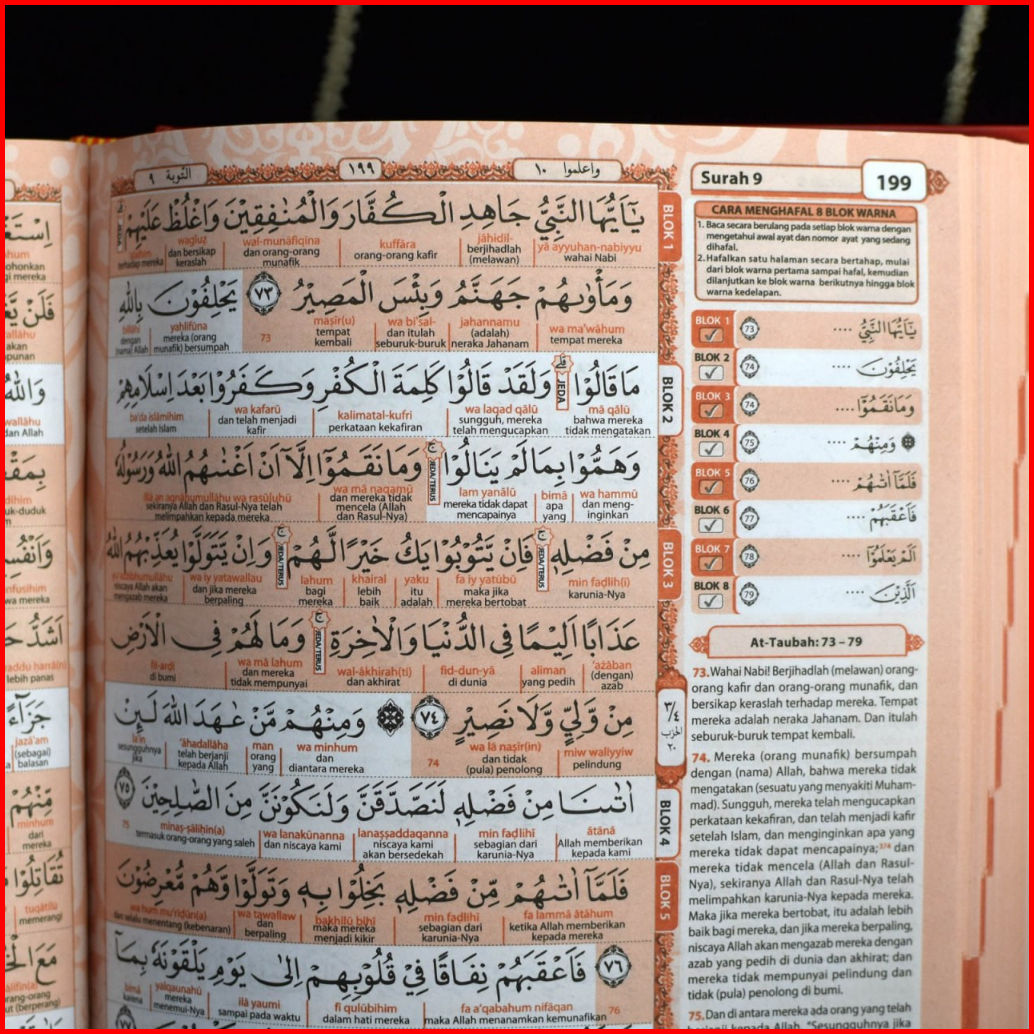 التوبة ٩
١٩٩
واعلموا ١٠
يٰٓاَيُّهَا النَّبِيُّ جَاهِدِ الْكُفَّارَ وَالْمُنٰفِقِيْنَ وَاغْلُظْ عَلَيْهِمْ
yā ayyuhan-nabiyyu jāhidil- kuffāra wal-munāfiqīna wagluẓ
wahai Nabi berjihadlah (melawan) orang-orang kafir dan orang-orang munafik dan bersikap keraslah terhadap mereka
وَمَأْوٰىهُمْ جَهَنَّمُ وَبِئْسَ الْمَصِيْرُ ٧٣ يَحْلِفُوْنَ بِاللّٰهِ
wa ma'wāhum jahannamu wa bi'sal- maṣīr(u) 73 yahlifūna billāhi
tempat mereka (adalah) neraka Jahanam dan itulah seburuk-buruk tempat kembali mereka (orang munafik) bersumpah dengan (nama) Allah
مَا قَالُوْا وَلَقَدْ قَالُوْا كَلِمَةَ الْكُفْرِ وَكَفَرُوْا بَعْدَ اِسْلَامِهِمْ
JEDA
mā qālū wa laqad qālū kalimatal-kufri wa kafarū ba'da islāmihim
bahwa mereka tidak mengatakan sungguh, mereka telah mengucapkan perkataan kekafiran dan telah menjadi kafir setelah Islam
وَهَمُّوْا بِمَا لَمْ يَنَالُوْا وَمَا نَقَمُوْٓا اِلَّآ اَنْ اَغْنٰىهُمُ اللّٰهُ وَرَسُوْلُهٗ
JEDA/TERUS
wa hammū bimā lam yanālū wa mā naqamū illā an agnāhumullāhu wa rasūluhū
dan meng-inginkan apa yang mereka tidak dapat mencapainya dan mereka tidak mencela (Allah dan Rasul-Nya) sekiranya Allah dan Rasul-Nya telah melimpahkan kepada mereka
مِنْ فَضْلِهٖ فَاِنْ يَّتُوْبُوْا يَكُ خَيْرًا لَّهُمْ وَاِنْ يَّتَوَلَّوْا يُعَذِّبْهُمُ اللّٰهُ
JEDA/TERUS JEDA/TERUS
min faḍlih(i) fa iy yatūbū yaku khairal lahum wa iy yatawallau yu'ażżibhumullāhu
karunia-Nya maka jika mereka bertobat itu adalah lebih baik bagi mereka dan jika mereka berpaling niscaya Allah akan mengazab mereka
عَذَابًا اَلِيْمًا فِى الدُّنْيَا وَالْاٰخِرَةِ وَمَا لَهُمْ فِى الْاَرْضِ
JEDA/TERUS
'ażāban alīman fid-dun-yā wal-ākhirah(ti) wa mā lahum fil-arḍi
(dengan) azab yang pedih di dunia dan akhirat dan mereka tidak mempunyai di bumi
مِنْ وَّلِيٍّ وَّلَا نَصِيْرٍ ٧٤ وَمِنْهُمْ مَّنْ عٰهَدَ اللّٰهَ لَىِٕنْ
miw waliyyiw wa lā naṣīr(in) 74 wa minhum man 'āhadallāha la'in
pelindung dan tidak (pula) penolong dan diantara mereka orang yang telah berjanji kepada Allah sesungguhnya jika
اٰتٰىنَا مِنْ فَضْلِهٖ لَنَصَّدَّقَنَّ وَلَنَكُوْنَنَّ مِنَ الصّٰلِحِيْنَ ٧٥
ātānā min faḍlihī lanaṣṣaddaqanna wa lanakūnanna minaṣ-ṣāliḥīn(a) 75
Allah memberikan kepada kami sebagian dari karunia-Nya niscaya kami akan bersedekah dan niscaya kami termasuk orang-orang yang saleh
فَلَمَّآ اٰتٰىهُمْ مِّنْ فَضْلِهٖ بَخِلُوْا بِهٖ وَتَوَلَّوْا وَّهُمْ مُّعْرِضُوْنَ
fa lammā ātāhum min faḍlihī bakhilū bihī wa tawallaw wa hum mu'riḍūn(a)
ketika Allah memberikan kepada mereka sebagian dari karunia-Nya maka mereka menjadi kikir dan berpaling dan selalu menentang (kebenaran)
٧٦ فَاَعْقَبَهُمْ نِفَاقًا فِيْ قُلُوْبِهِمْ اِلٰى يَوْمِ يَلْقَوْنَهٗ بِمَآ
76 fa a'qabahum nifāqan fī qulūbihim ilā yaumi yalqaunahū bimā
maka Allah menanamkan kemunafikan dalam hati mereka sampai pada waktu mereka menemui-Nya karena
BLOK 1
BLOK 2
BLOK 3
٣/٤
الحزب
٢٠
BLOK 4
BLOK 5
Surah 9
199
CARA MENGHAFAL 8 BLOK WARNA
1. Baca secara berulang pada setiap blok warna dengan
mengetahui awal ayat dan nomor ayat yang sedang
dihafal.
2. Hafalkan satu halaman secara bertahap, mulai
dari blok warna pertama sampai hafal, kemudian
dilanjutkan ke blok warna berikutnya hingga blok
warna kedelapan.
BLOK 1 73 يٰٓاَيُّهَا النَّبِيُّ ....
BLOK 2 74 يَحْلِفُوْنَ ....
BLOK 3 74 وَمَا نَقَمُوْٓا ....
BLOK 4 75 وَمِنْهُمْ ....
BLOK 5 76 فَلَمَّآ اٰتٰىهُمْ ....
BLOK 6 77 فَاَعْقَبَهُمْ ....
BLOK 7 78 اَلَمْ يَعْلَمُوْٓا ....
BLOK 8 79 اَلَّذِيْنَ ....
At-Taubah: 73 – 79
73. Wahai Nabi! Berjihadlah (melawan) orang-
orang kafir dan orang-orang munafik, dan
bersikap keraslah terhadap mereka. Tempat
mereka adalah neraka Jahanam. Dan itulah
seburuk-buruk tempat kembali.
74. Mereka (orang munafik) bersumpah
dengan (nama) Allah, bahwa mereka tidak
mengatakan (sesuatu yang menyakiti Muham-
mad). Sungguh, mereka telah mengucapkan
perkataan kekafiran, dan telah menjadi kafir
setelah Islam, dan menginginkan apa yang
mereka tidak dapat mencapainya;374 dan
mereka tidak mencela (Allah dan Rasul-
Nya), sekiranya Allah dan Rasul-Nya telah
melimpahkan karunia-Nya kepada mereka.
Maka jika mereka bertobat, itu adalah lebih
baik bagi mereka, dan jika mereka berpaling,
niscaya Allah akan mengazab mereka dengan
azab yang pedih di dunia dan akhirat; dan
mereka tidak mempunyai pelindung dan
tidak (pula) penolong di bumi.
75. Dan di antara mereka ada orang yang telah
berjanji kepada Allah, "Sesungguhnya jika